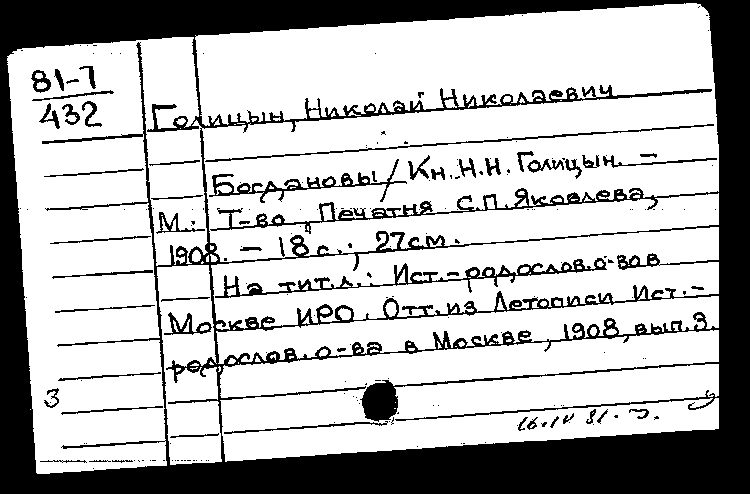 81-7
432
Голицын, Николай Николаевич
Богдановы / Кн. Н.Н. Голицын. –
М.: Т-во "Печатня С.П. Яковлева,
1908. – 18 с.; 27см.
На тит.л.: Ист.-родослов. о-во в
Москве ИРО. Отт. из Летописи Ист.-
родослов. о-ва в Москве, 1908, вып. 3.
3
16.IV 81.